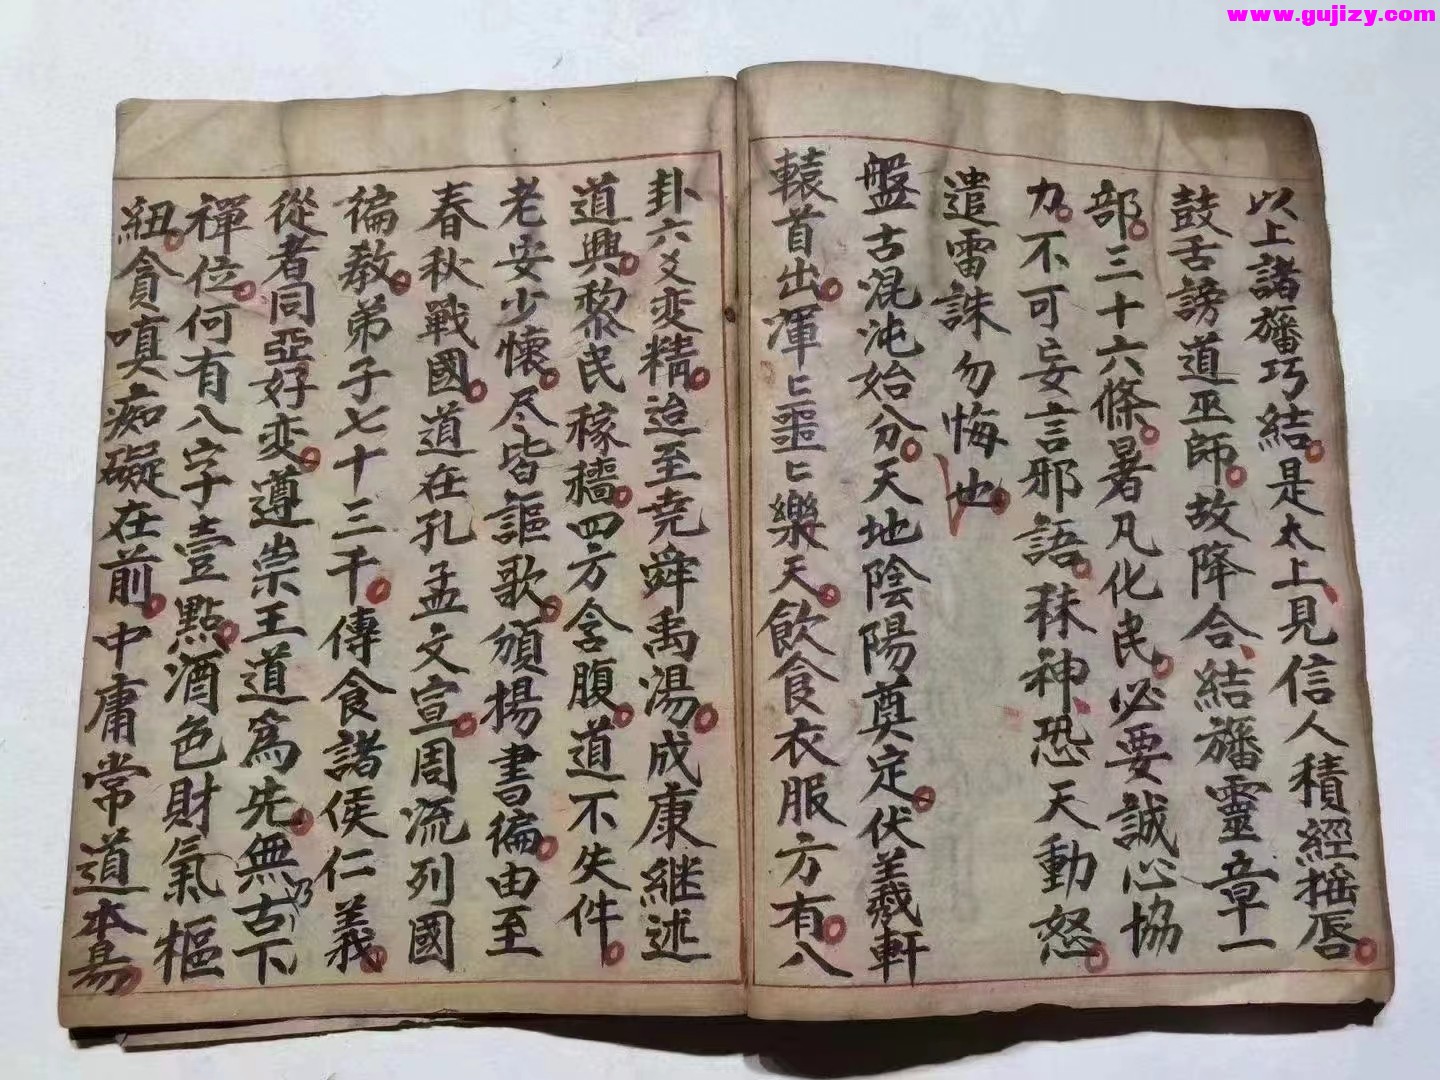 www.gujizy.com
以上諸旛巧結是太上見信人積經搖唇
鼓舌謗道巫師故降合結旛靈章一
部三十六條暑凡化民必要誠心協
力不可妄言邪語秣神恐天動怒
遣雷誅勿悔也
盤古混沌始分天地陰陽奠定伏羲軒
轅首出渾〻噩〻樂天飲食衣服方有八
卦六爻变精迨至尭舜禹湯成康继述
道興黎民稼穡四方含腹道不失件
老安少懷尽皆謳歌頒揚書徧由至
春秋戰國道在孔孟文宣周流列國
徧教弟子七十三千傳食諸侯仁義
從者同亞好变遵崇王道爲先無古乃下
禪位何有八字壹點酒色財氣樞
紐貪嗔痴礙在前中庸常道本昜